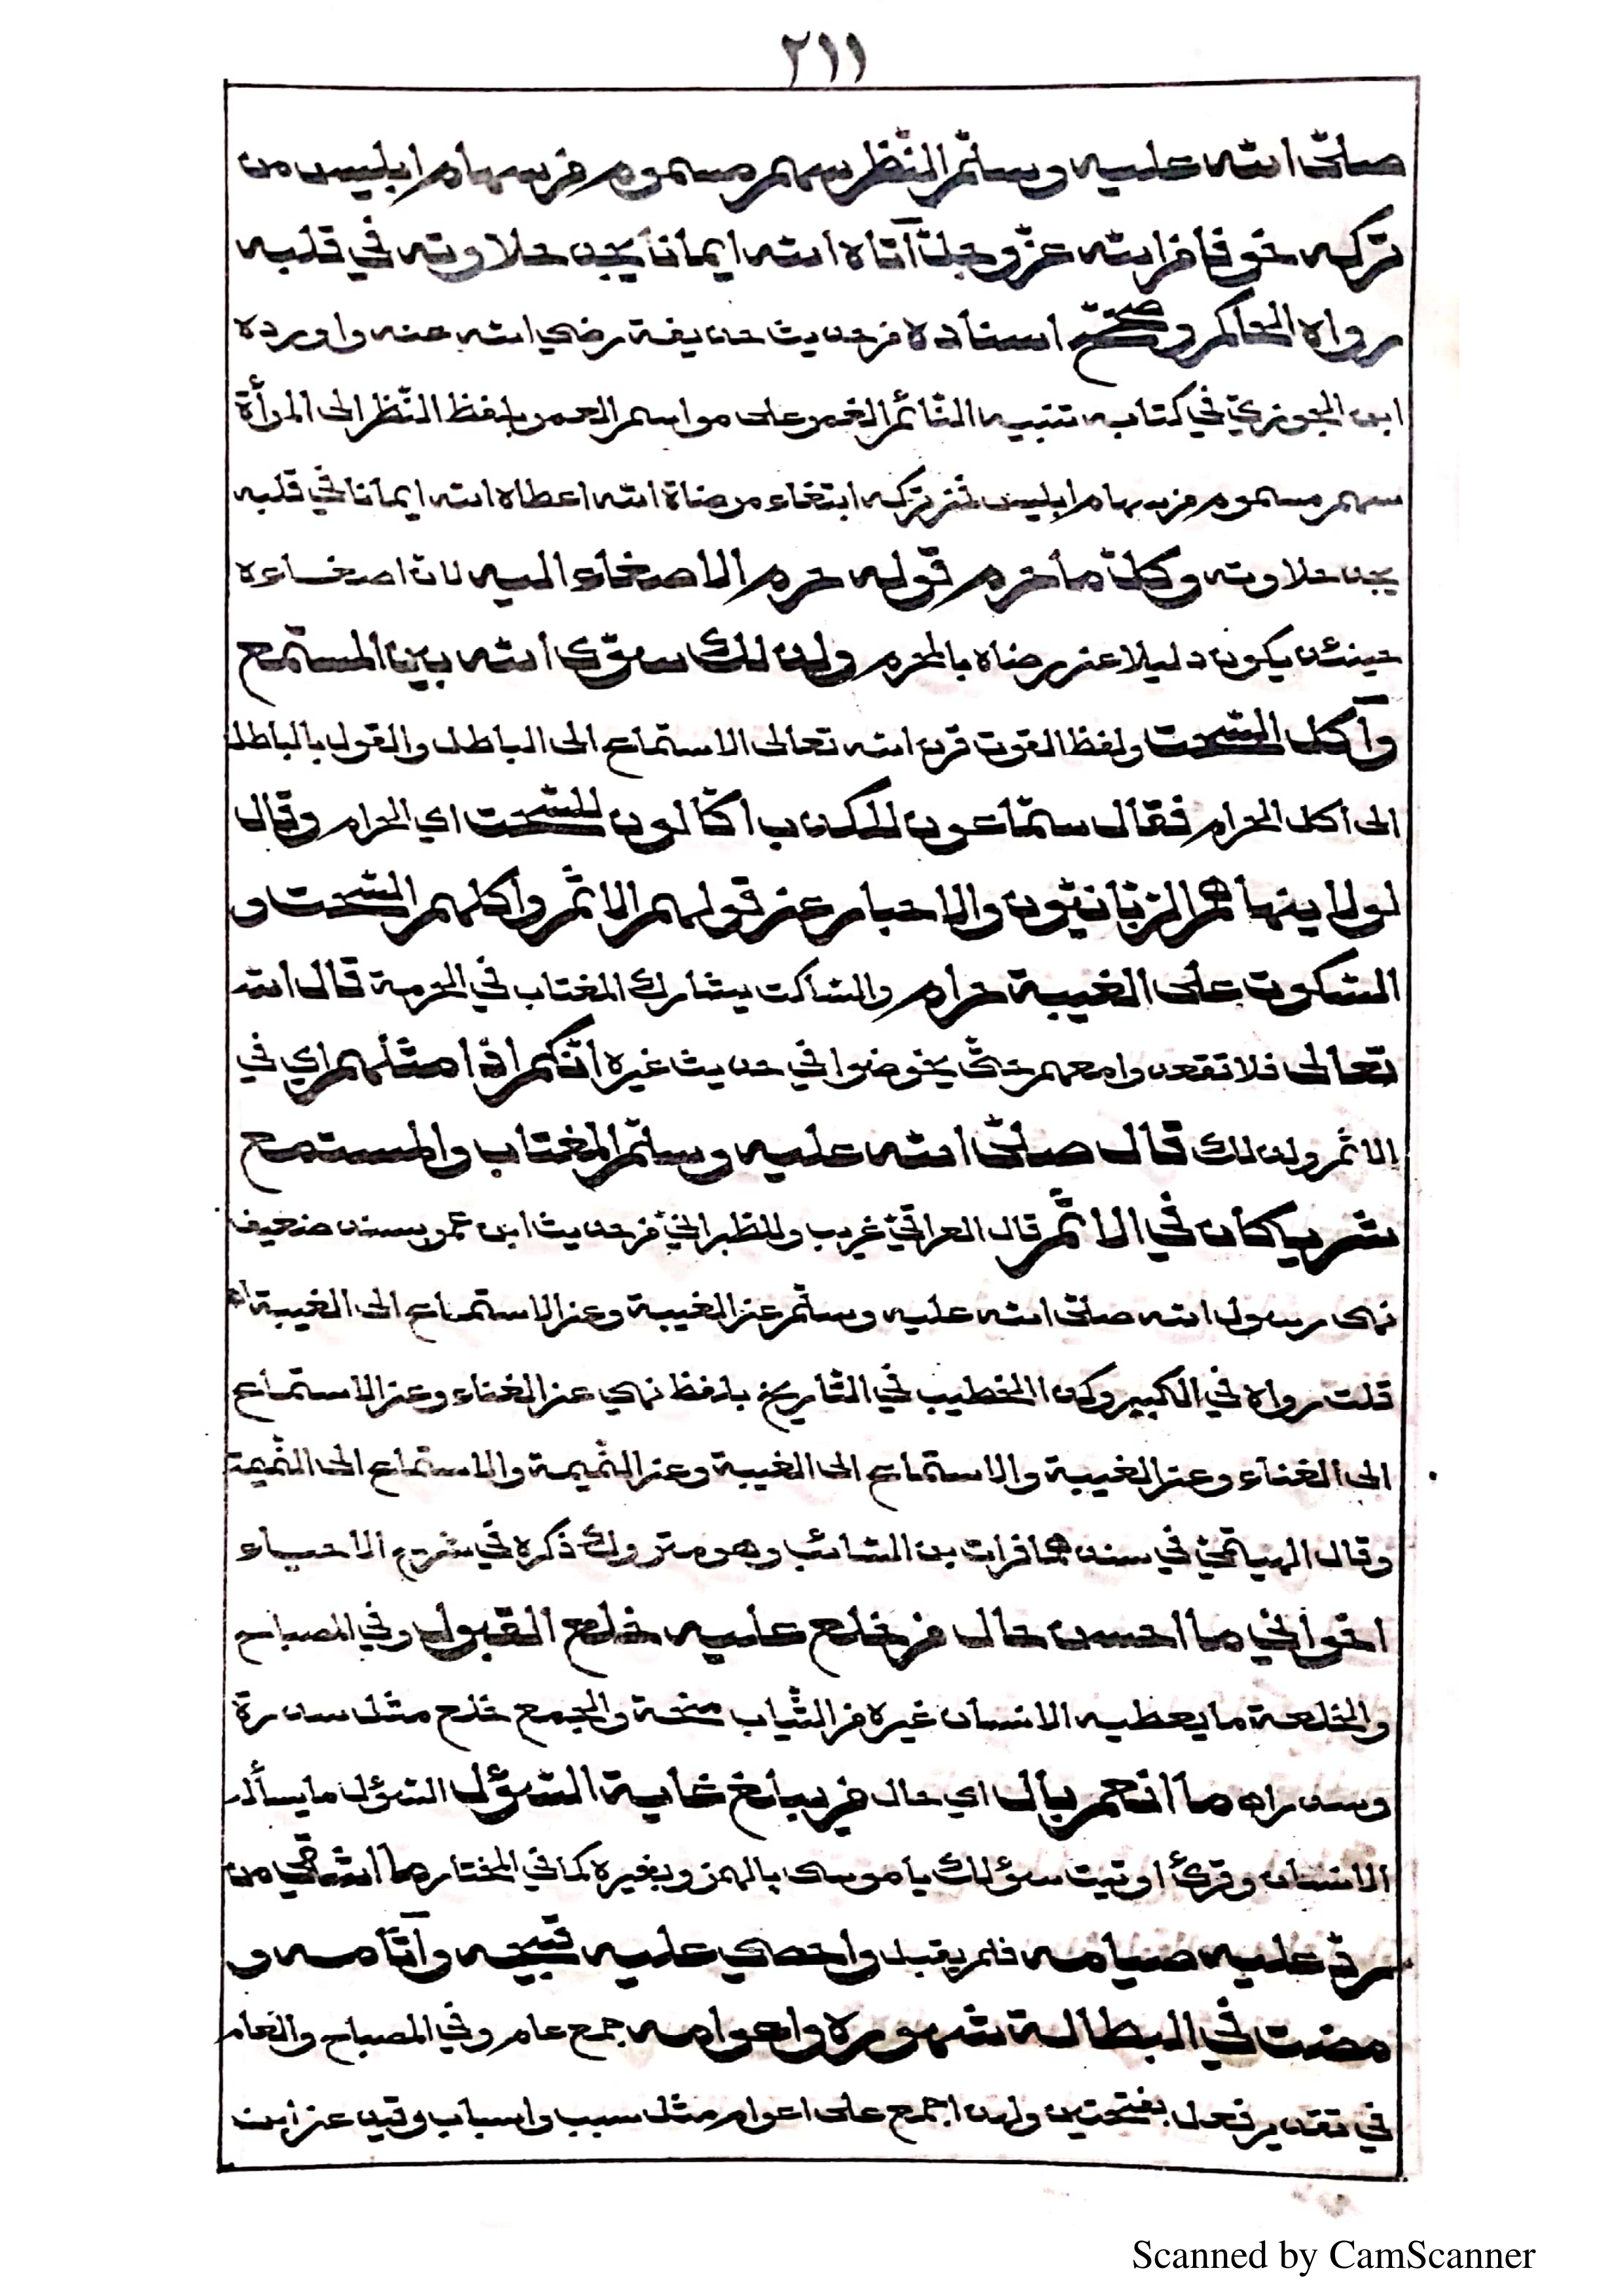 ٢١١
صلّى الله عليه وسلّم النّظر سهم مسموم من سهام ابليس من
تركه خوفا من الله عزّ وجلّ آتاه الله ايمانا يجد حلاوته في قلبه
رواه الحاكم وصحّح اسناده من حديث حذيفة رضي الله عنه واورده
ابن الجوزيّ في كتابه تنبيه النّائم الغمر على مواسم العمر بلفظ النّظر الى المرأة
سهم مسموم من سهام ابليس فمن تركه ابتغاء مرضاة الله اعطاه الله ايمانا في قلبه
يجد حلاوته وكلّ ما حرم قوله حرم الاصغاء اليه لانّ اصغاءه
حينئذ يكون دليلا عن رضاه بالمحرم ولذلك سوّى الله بين المستمع
وآكل السّحت ولفظ القوت قرن الله تعالى الاستماع الى الباطل والقول بالباطل
الى اكل الحرام فقال سمّاعون للكذب اكّالون للسّحت اي الحرام وقال
لولا ينهاهم الربّانيّون والاحبار عن قولهم الاثم واكلهم السّحت و
السّكوت على الغيبة حرام والسّاكت يشارك المغتاب في الحرمة قال الله
تعالى فلا تقعدوا معهم حتّى يخوضوا في حديث غيره انّكم اذا مثلهم اي في
الاثم ولذلك قال صلّى الله عليه وسلّم المغتاب والمستمع
شريكان في الاثم قال العراقيّ غريب وللطبرانيّ من حديث ابن عمر بسند ضعيف
نهى رسول الله صلّى الله عليه وسلّم عن الغيبة وعن الاستماع الى الغيبة اه
قلت رواه في الكبير وكذا الخطيب في التّاريخ بلفظ نهي عن الغناء وعن الاستماع
الى الغناء وعن الغيبة والاستماع الى الغيبة وعن النّميمة والاستماع الى النّميمة
وقال الهيتميّ في سندهما فرات بن السّائب وهو متروك ذكره في شرح الاحياء
اخواني ما احسن حال من خلع عليه خلع القبول وفي المصباح
والخلعة ما يعطيه الانسان غيره من الثّياب منحة والجمع خلع مثل سدرة
وسدر اه ما انعم بال اي حال من يبلغ غاية السّؤل السّؤل ما يسأله
الانسان وقرئ اوتيت سؤلك يا موسى بالهمز وبغيره كما في المختار ما اشقى من
ردّ عليه صيامه فلم يقبل واحصي عليه قبيحه وآثامه و
مضت في البطالة شهوره واعوامه جمع عام وفي المصباح والعام
في تقدير فعل بفتحتين ولهذا جمع على اعوام مثل سبب واسباب وقيل عن ابن
Scanned by CamScanner